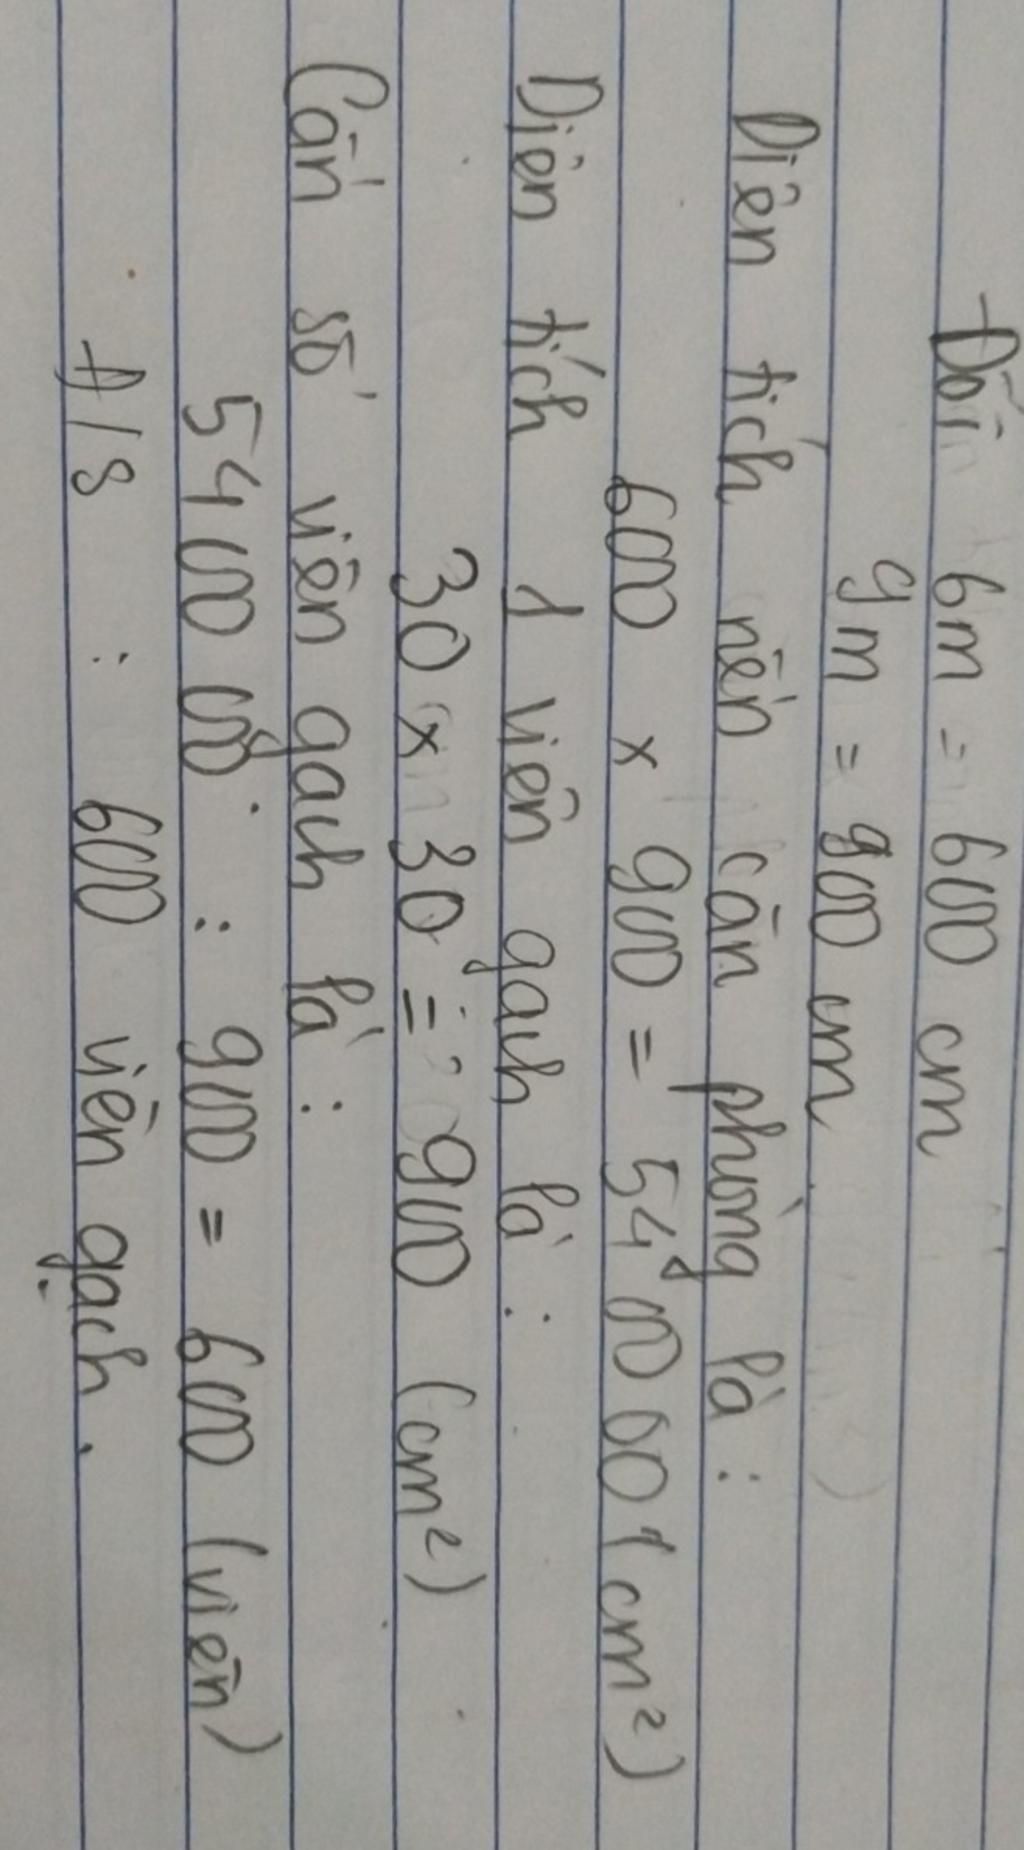 Đổi 6m = 600 cm
9m = 900 cm
Diện tích nền căn phòng là :
600 x 900 = 540000 (cm²)
Diện tích 1 viên gạch là :
30 x 30 = 900 (cm²)
Cần số viên gạch là :
540000 : 900 = 600 (viên)
Đ/S : 600 viên gạch.